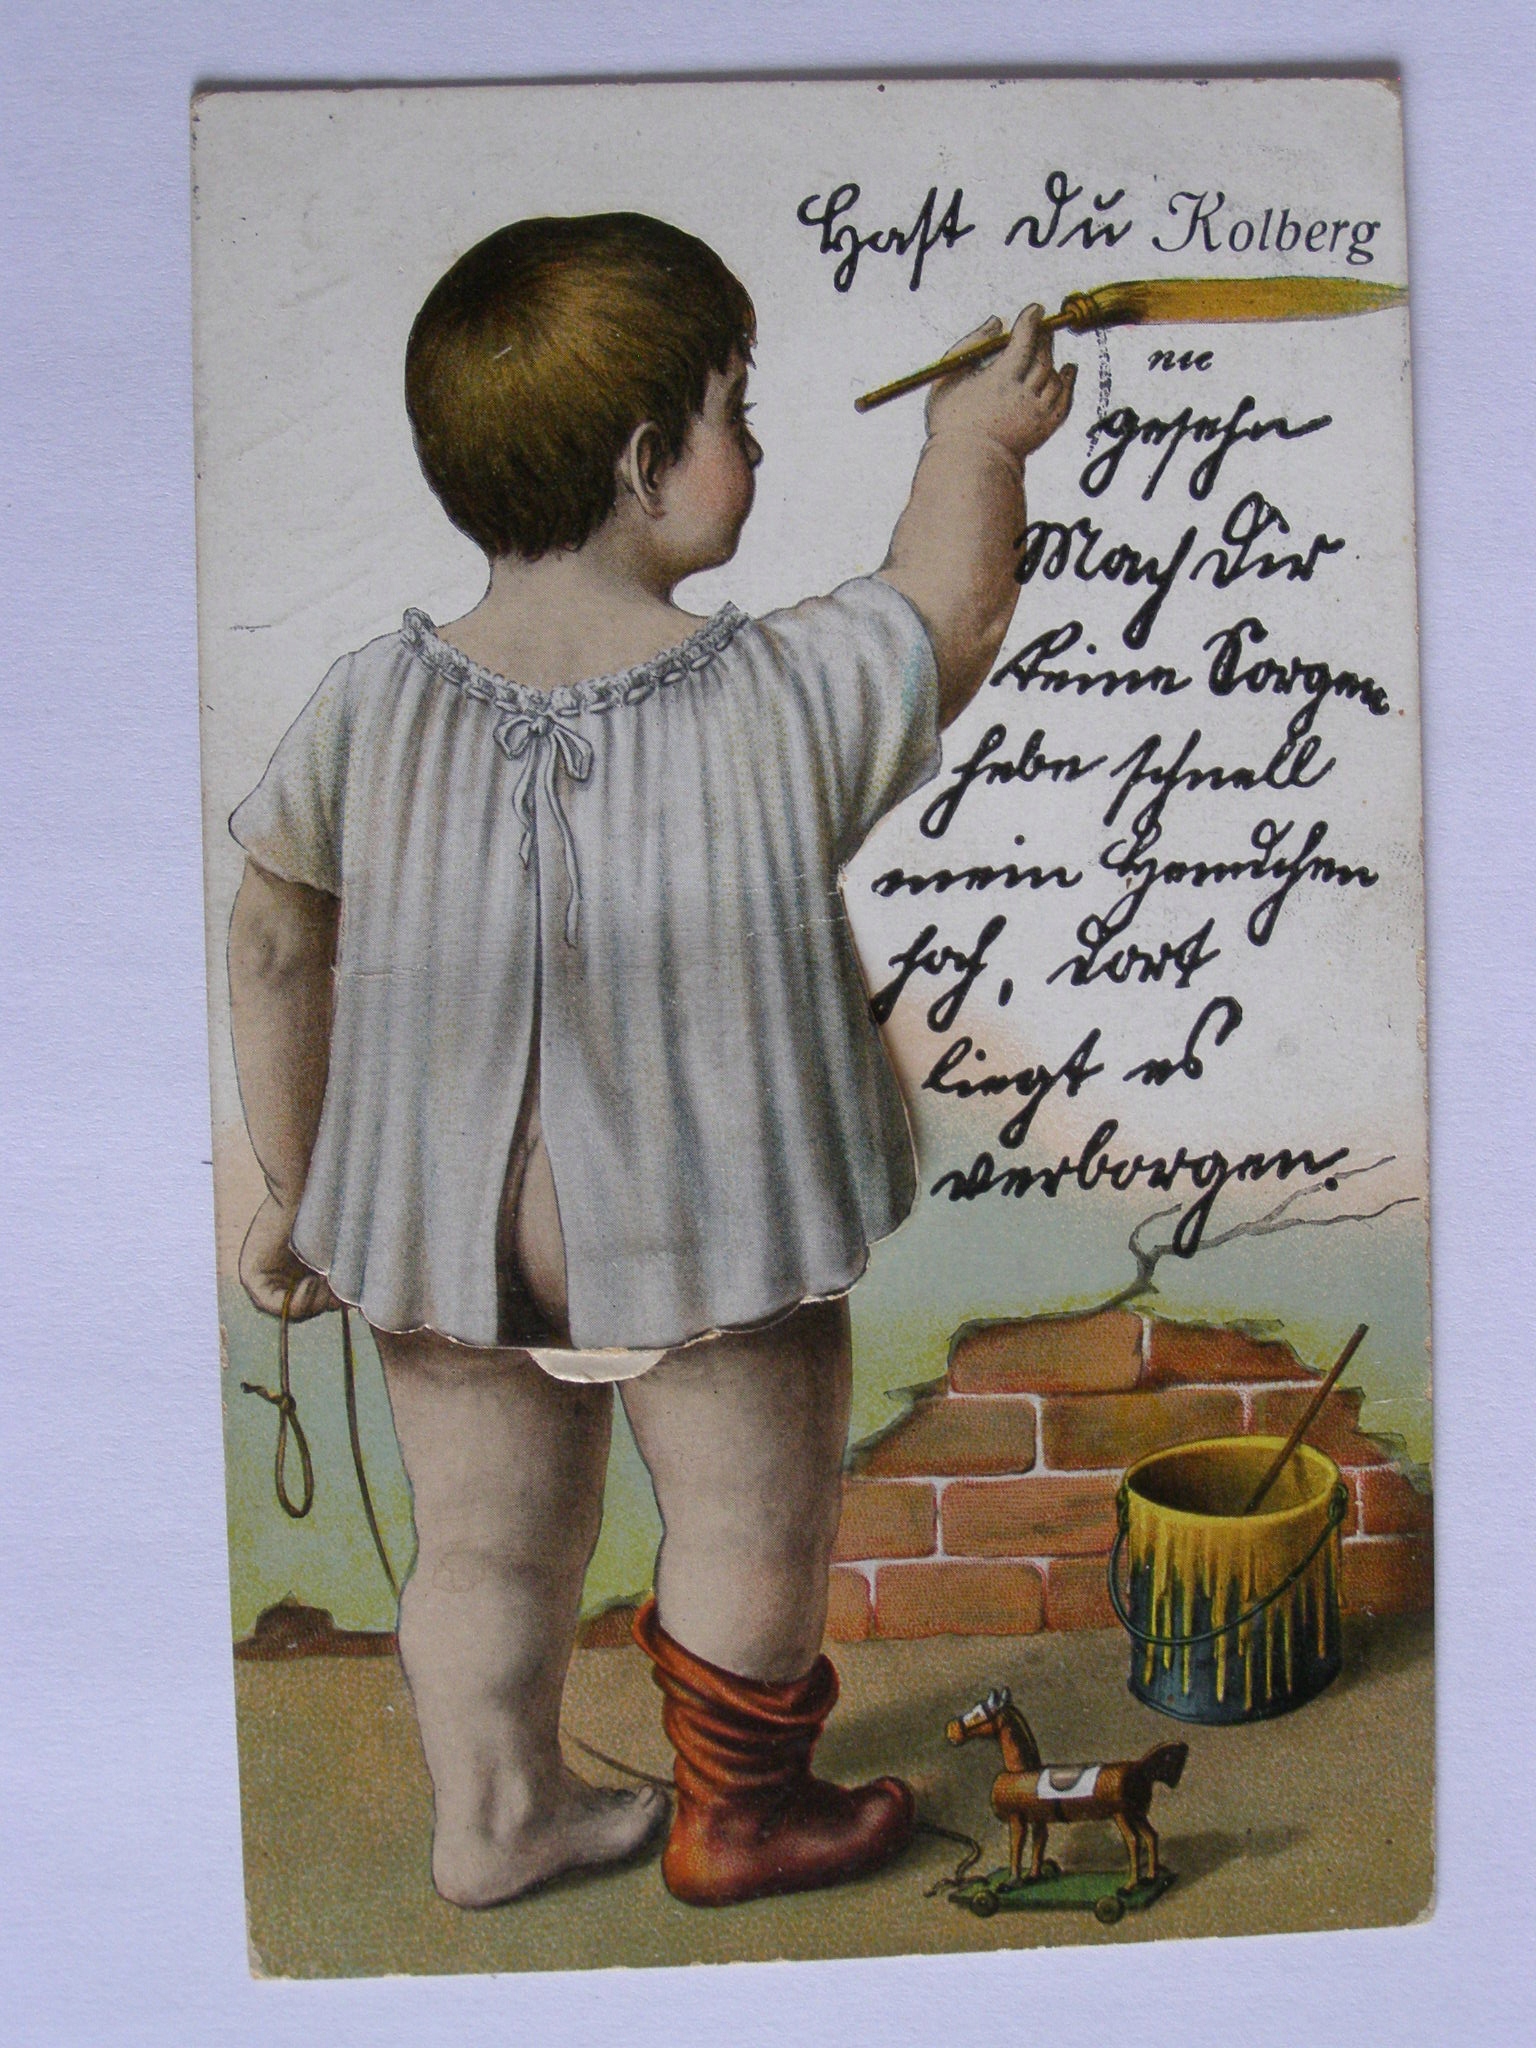 Hast Du Kolberg
nie
gesehn
Mach Dir
keine Sorgen
hebe schnell
mein Hemdchen
hoch, dort
liegt es
verborgen.